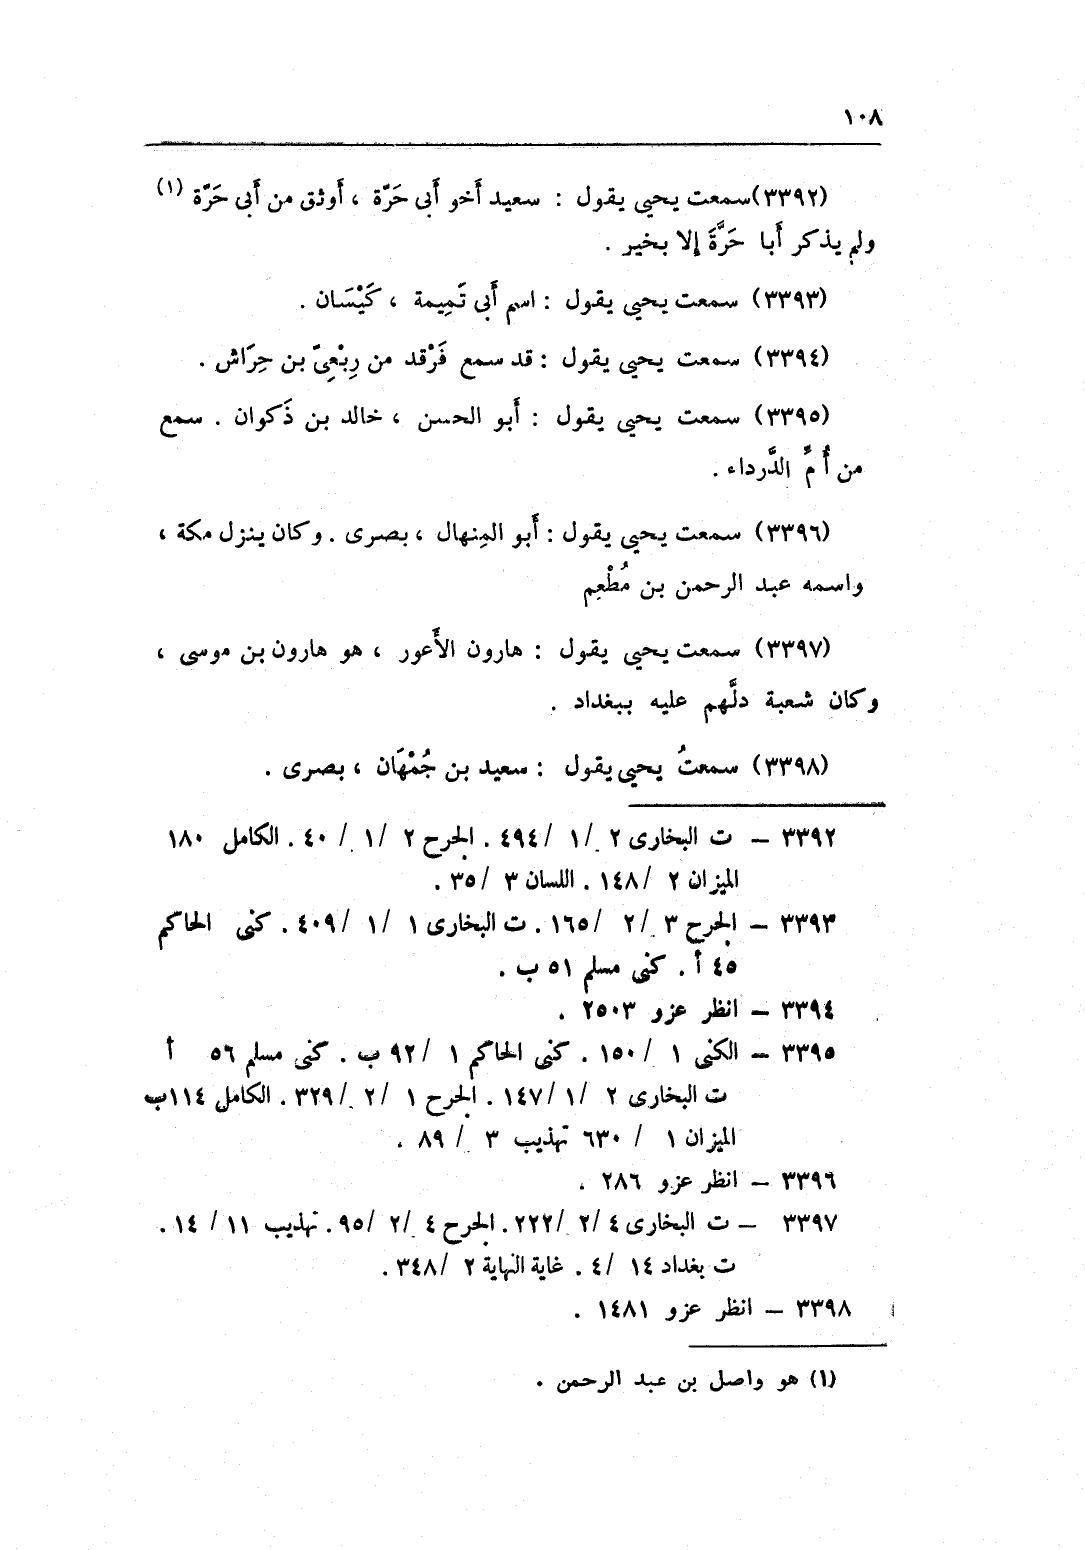 ١٠٨
(٣٣٩٢)سمعت يحيى يقول : سعيد أَخو أَبى حَرَّة ، أَوثق من أَبى حَرَّة (١)
ولم يذكر أَبا حَرَّةَ إلا بخير .
(٣٣٩٣) سمعت يحيى يقول : اسم أَبى تَمِيمة ، كَيْسَان .
(٣٣٩٤) سمعت يحيى يقول : قد سمع فَرْقد من رِبْعِىّ بن حِرَاش .
(٣٣٩٥) سمعت يحيى يقول : أَبو الحسن ، خالد بن ذَكوان . سمع
من أُمِّ الدَّرداء .
(٣٣٩٦) سمعت يحيى يقول : أَبو المِنهال ، بصرى . وكان ينزل مكة ،
واسمه عبد الرحمن بن مُطْعِم
(٣٣٩٧) سمعت يحيى يقول : هارون الأَعور ، هو هارون بن موسى ،
وكان شعبة دلَّهم عليه ببغداد .
(٣٣٩٨) سمعتُ يحيى يقول : سعيد بن جُمْهَان ، بصرى .
٣٣٩٢ – ت البخارى ٢ / ١ / ٤٩٤ . الجرح ٢ / ١ / ٤٠ . الكامل ١٨٠
الميزان ٢ / ١٤٨ . اللسان ٣ / ٣٥ .
٣٣٩٣ – الجرح ٣ / ٢ / ١٦٥ . ت البخارى ١ / ١ / ٤٠٩ . كنى الحاكم
٤٥ أ . كنى مسلم ٥١ ب .
٣٣٩٤ – انظر عزو ٢٥٠٣ .
٣٣٩٥ – الكنى ١ / ١٥٠ . كنى الحاكم ١ / ٩٢ ب . كنى مسلم ٥٦ أ
ت البخارى ٢ / ١ / ١٤٧ . الجرح ١ / ٢ / ٣٢٩ . الكامل ١١٤ب
الميزان ١ / ٦٣٠ تهذيب ٣ / ٨٩ .
٣٣٩٦ – انظر عزو ٢٨٦ .
٣٣٩٧ – ت البخارى ٤ / ٢ / ٢٢٢ . الجرح ٤ / ٢ / ٩٥ . تهذيب ١١ / ١٤ .
ت بغداد ١٤ / ٤ . غاية النهاية ٢ / ٣٤٨ .
٣٣٩٨ – انظر عزو ١٤٨١ .
(١) هو واصل بن عبد الرحمن .